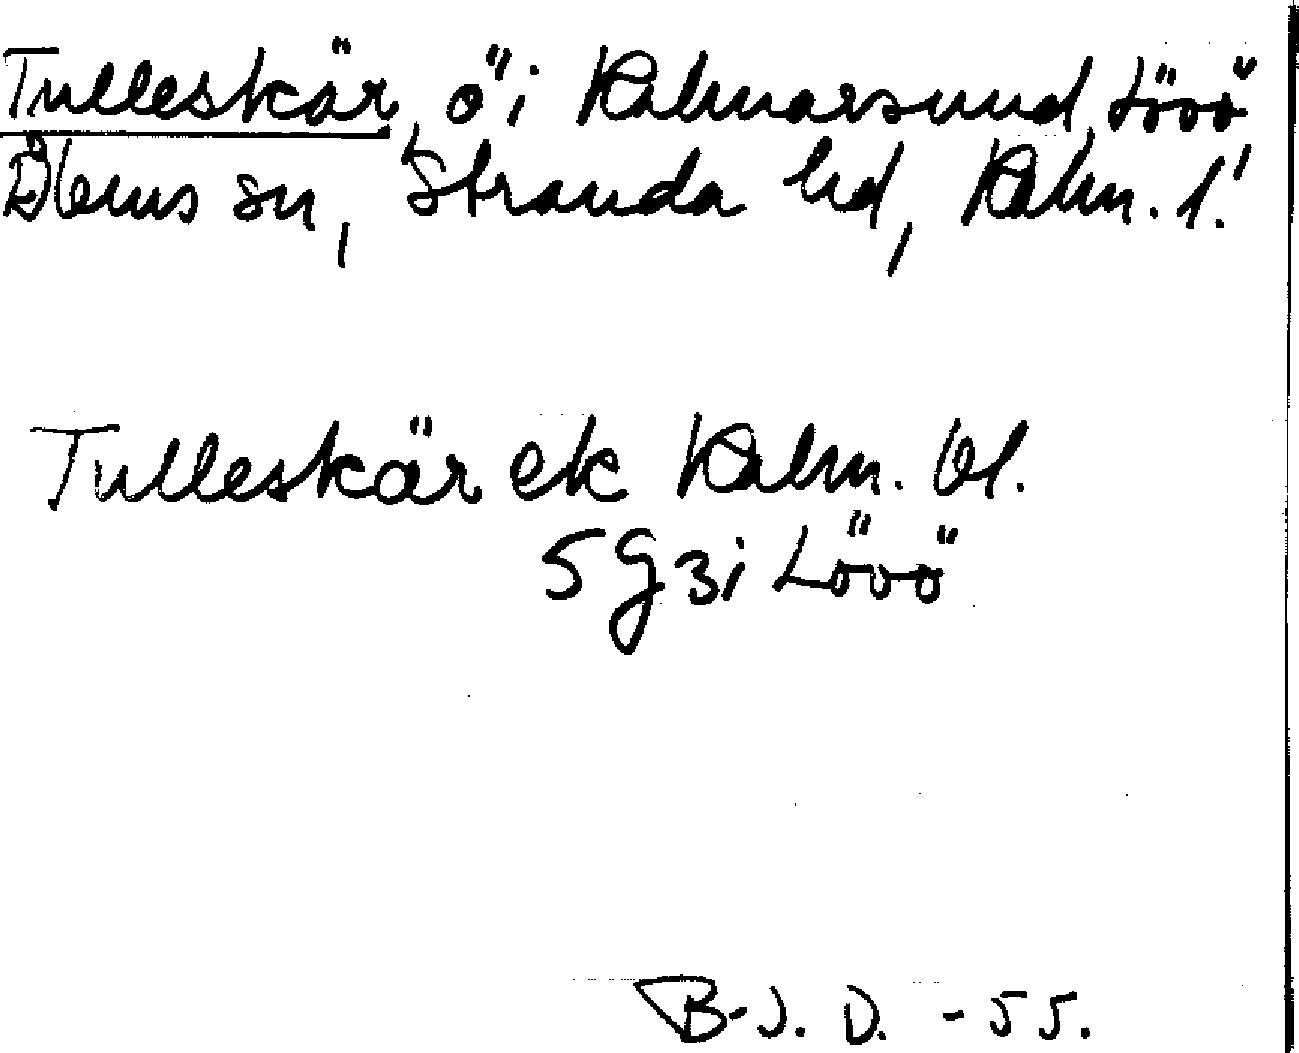 Tulleskär, ö i Kalmarsund, Lövö
Ålems sn, Stranda hd, Kalm. l.
Tulleskär ek Kalm. bl.
5 G 3 i Lövö
B-J. D. -55.